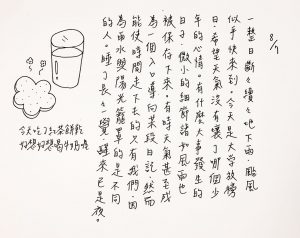 8/7
一整日斷斷續續地下雨，颱風
似乎快來到。今天是大學放榜
日，希望天氣沒有壞了哪個少
年的心情。有什麼大事發生的
日子，微小的細節諸如風雨也
被保存下來，有時天氣甚至成
為一個入口導向某段日記，然而
能使時間走下去的只有我們，因
為雨水與陽光籠罩的是不同
的人。睡了長長一覺，醒來已是夜。
今天吃了紅茶餅乾
好想好想喝牛奶噢